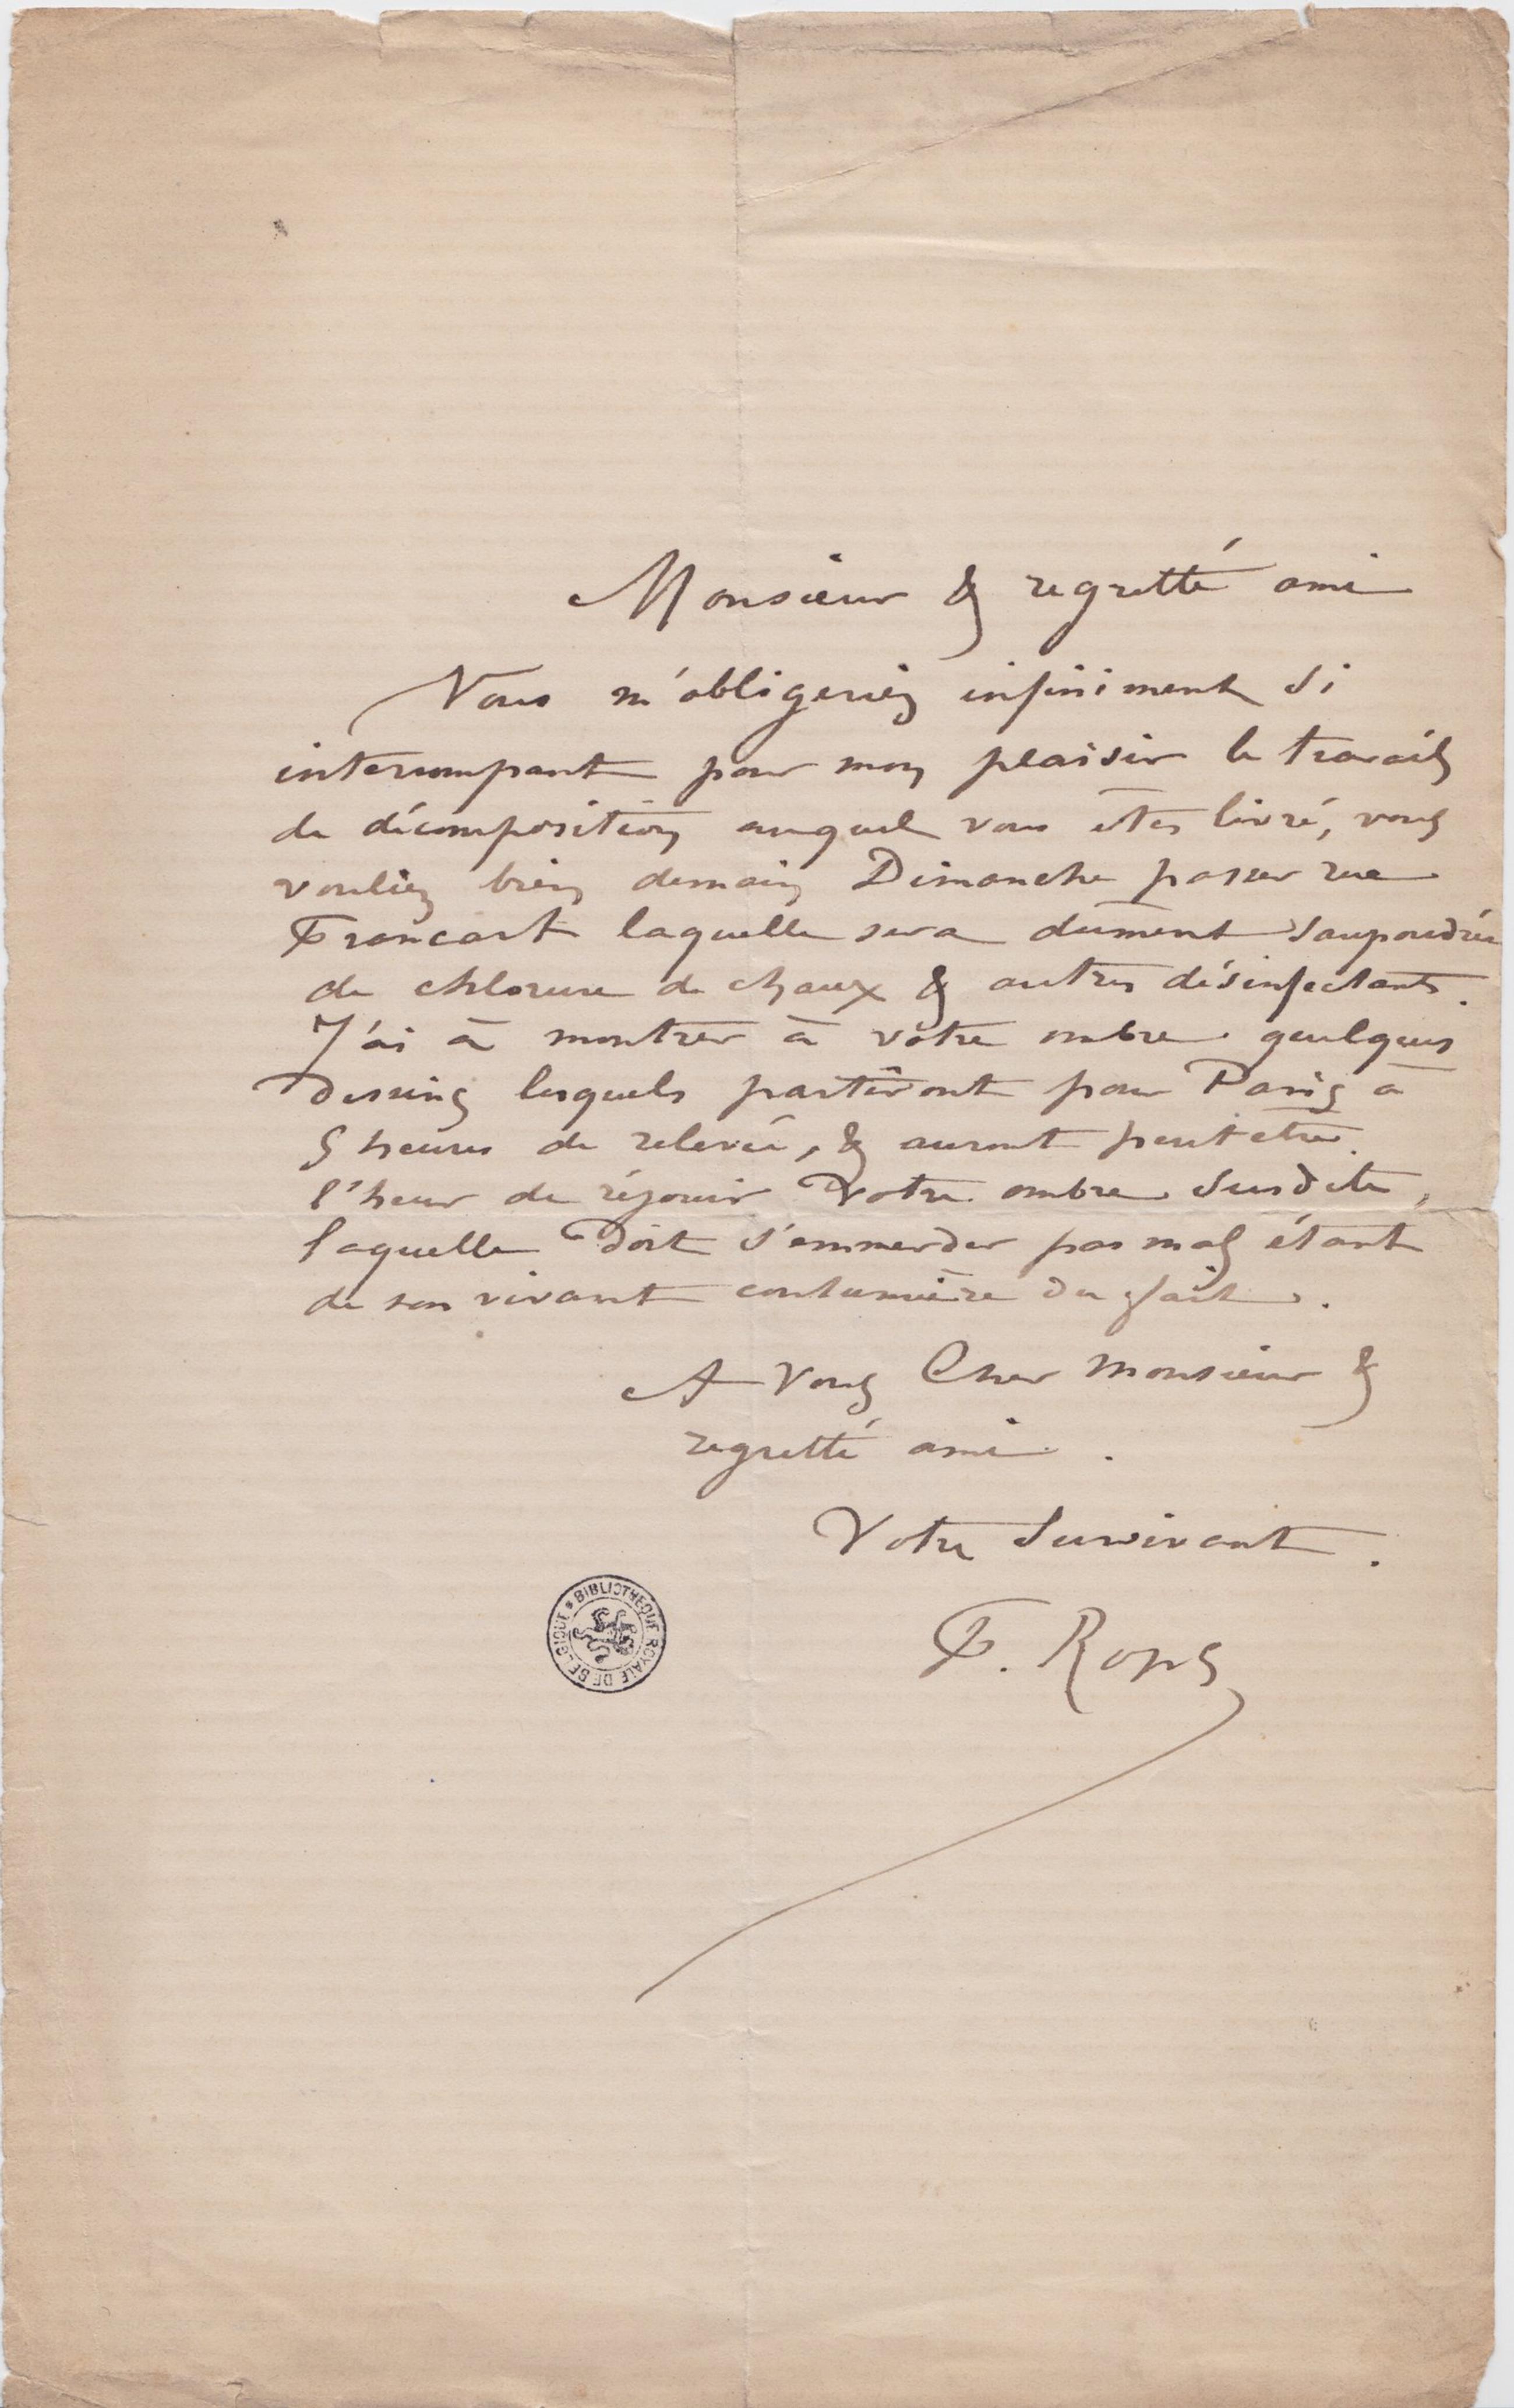 Monsieur & regretté ami
Vous m'obligeriez infiniment si
interrompant pour mon plaisir le travail
de décomposition auquel vous êtes livré, vous
vouliez bien demain Dimanche passer rue
Francart laquelle sera dûment saupoudrée
de chlorure de chaux & autres désinfectants.
J'ai à montrer à vôtre ombre quelques
dessins lesquels partiront pour Paris à
5 heures de relevée, & auront peut être
l'heur de réjouir votre ombre susdite,
laquelle doit s'emmerder pas mal étant
de son vivant coutumière du fait.
A Vous Cher Monsieur &
regretté ami.
Votre Survivant.
F. Rops
BIBLIOTHEQUE ROYALE DE BELGIQUE